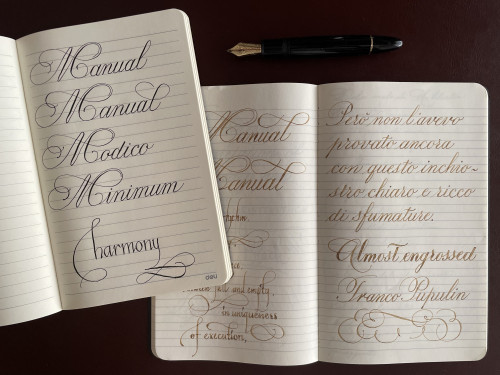 Manual
Manual
Modico
Minimum
harmony
deli
Manual
Manual
rhythm,
and empty,
in uniqueness
of execution,
Però non l'avevo
provato ancora
con questo inchio-
stro chiaro e ricco
di sfumature.
Almost engrossed
Franco Pupulin